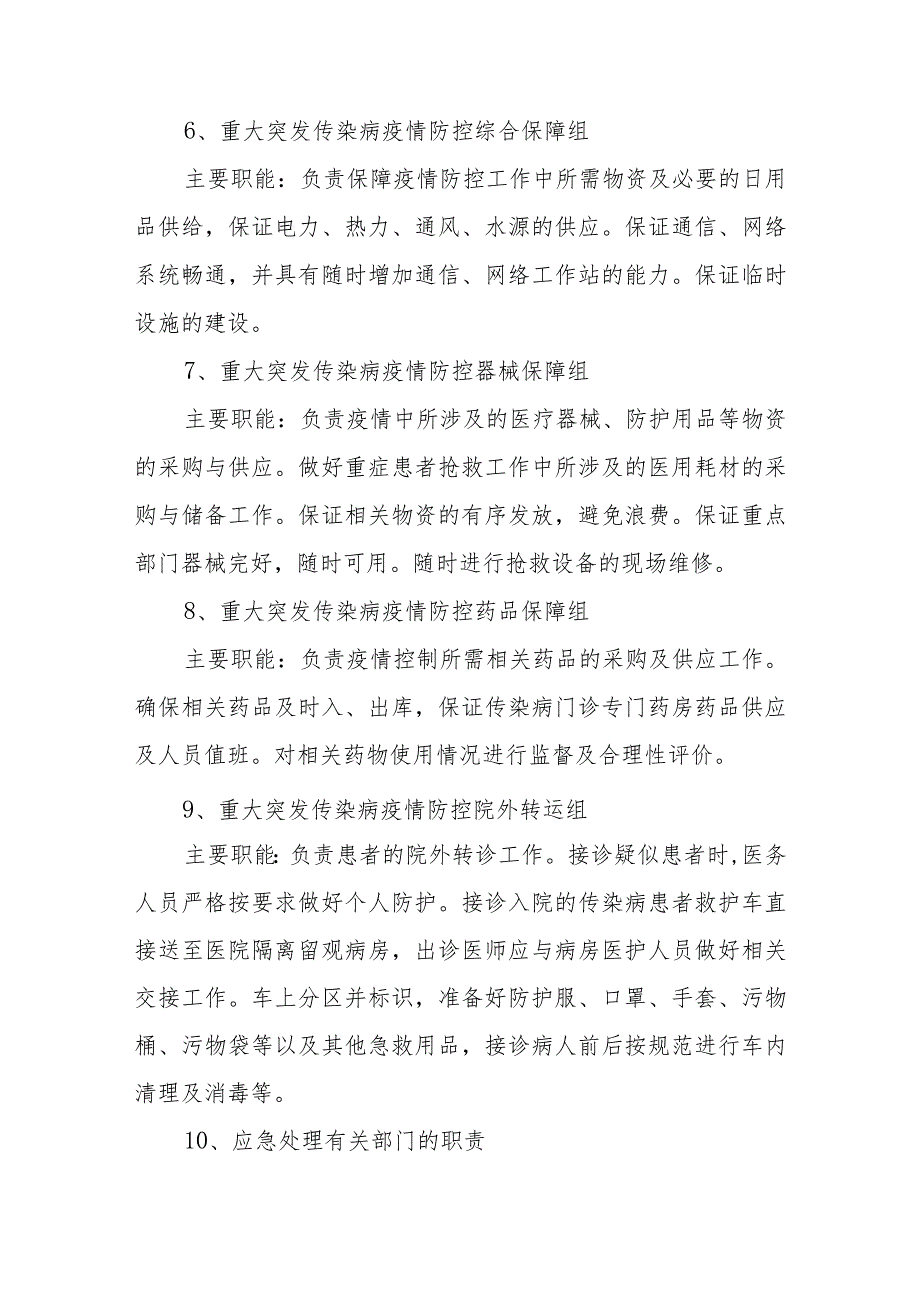 6、重大突发传染病疫情防控综合保障组
主要职能：负责保障疫情防控工作中所需物资及必要的日用
品供给，保证电力、热力、通风、水源的供应。保证通信、网络
系统畅通，并具有随时增加通信、网络工作站的能力。保证临时
设施的建设。
7、重大突发传染病疫情防控器械保障组
主要职能：负责疫情中所涉及的医疗器械、防护用品等物资
的采购与供应。做好重症患者抢救工作中所涉及的医用耗材的采
购与储备工作。保证相关物资的有序发放，避免浪费。保证重点
部门器械完好，随时可用。随时进行抢救设备的现场维修。
8、重大突发传染病疫情防控药品保障组
主要职能：负责疫情控制所需相关药品的采购及供应工作。
确保相关药品及时入、出库，保证传染病门诊专门药房药品供应
及人员值班。对相关药物使用情况进行监督及合理性评价。
9、重大突发传染病疫情防控院外转运组
主要职能：负责患者的院外转诊工作。接诊疑似患者时,医务
人员严格按要求做好个人防护。接诊入院的传染病患者救护车直
接送至医院隔离留观病房，出诊医师应与病房医护人员做好相关
交接工作。车上分区并标识，准备好防护服、口罩、手套、污物
桶、污物袋等以及其他急救用品，接诊病人前后按规范进行车内
清理及消毒等。
10、应急处理有关部门的职责